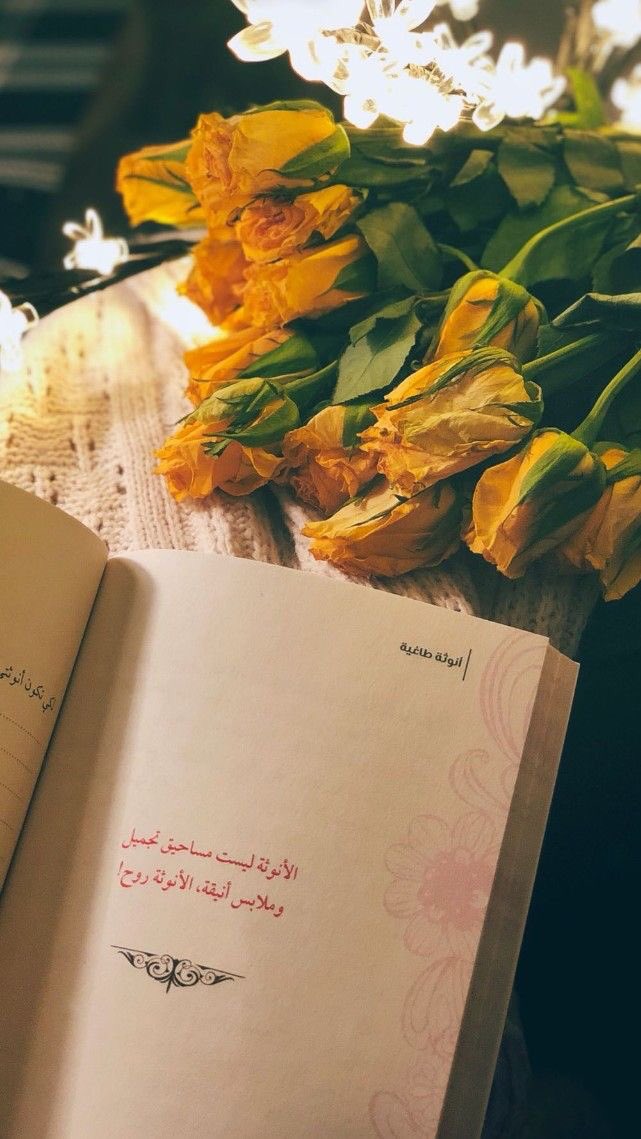 انوثة طاغية
الأنوثة ليست مساحيق تجميل
وملابس أنيقة، الأنوثة روح!
لكي تكون أنوثتي